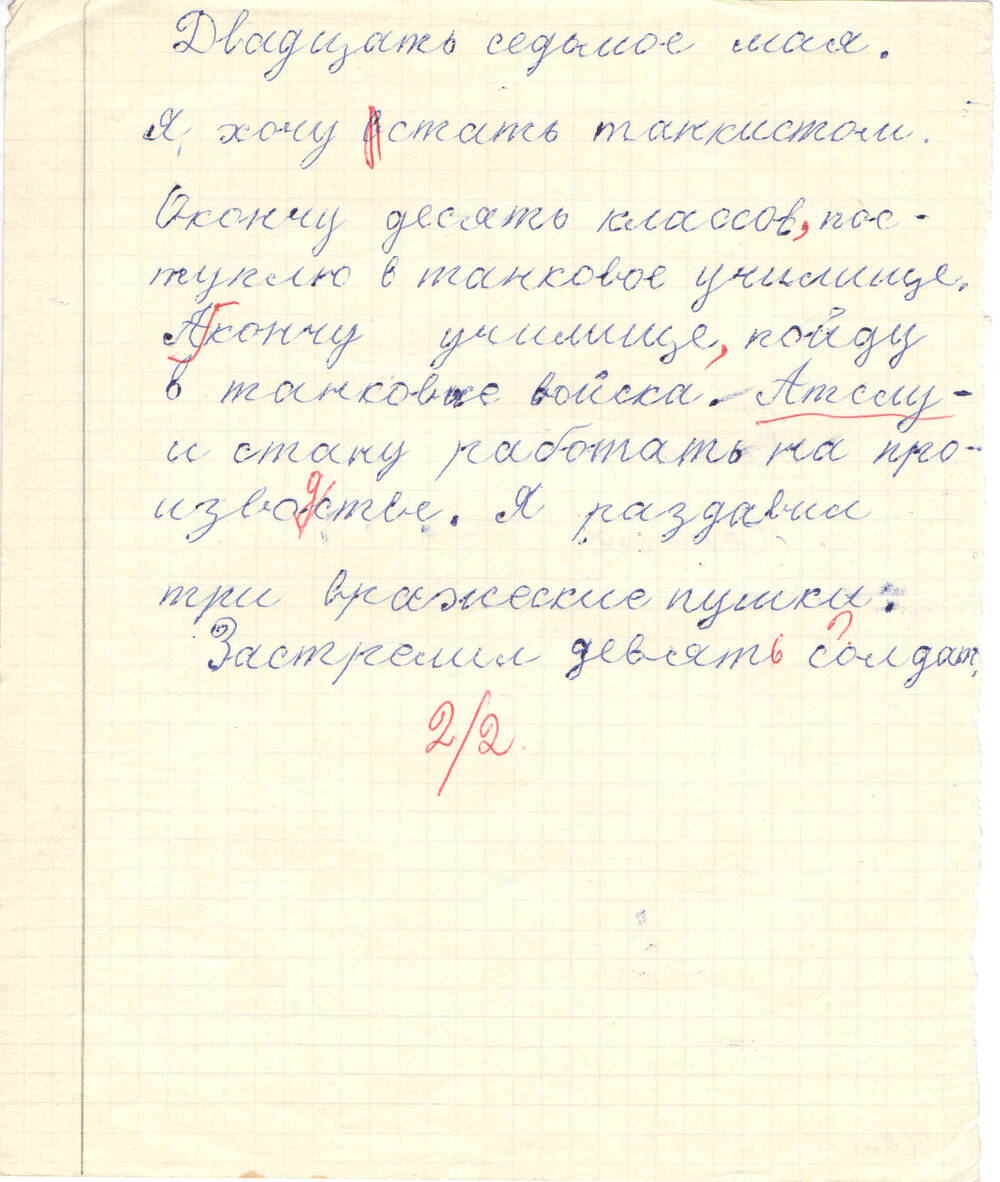 Двадцать седьмое мая.
Я хочу встать танкистом.
Окончу десять классов, пос-
туплю в танковое училище.
Акончу училище, пойду
в танковые войска. Атслу-
и стану работать на про-
изводстве. Я раздавил
три вражеские пушки.
Застрелил девять солдат,
2/2.